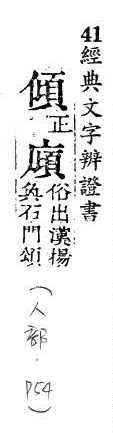 41經典文字辨證書
傾正
俗出漢楊
石門頌
(人部.P54)